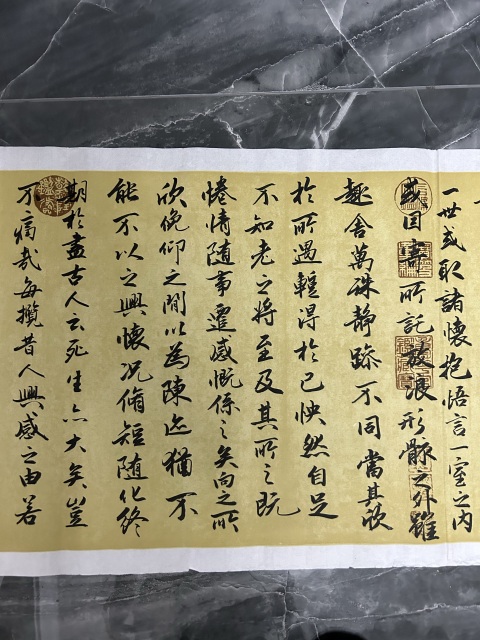 一世或取諸懷抱悟言一室之内
或因寄所託放浪形骸之外雖
趣舍萬殊靜躁不同當其欣
於所遇蹔得於己怏然自足
不知老之將至及其所之既
惓情随事遷感慨係之矣向之所
欣俛仰之閒以為陳迹猶不
能不以之興懷況脩短随化終
期於盡古人云死生亦大矣豈
不痛哉每攬昔人興感之由若